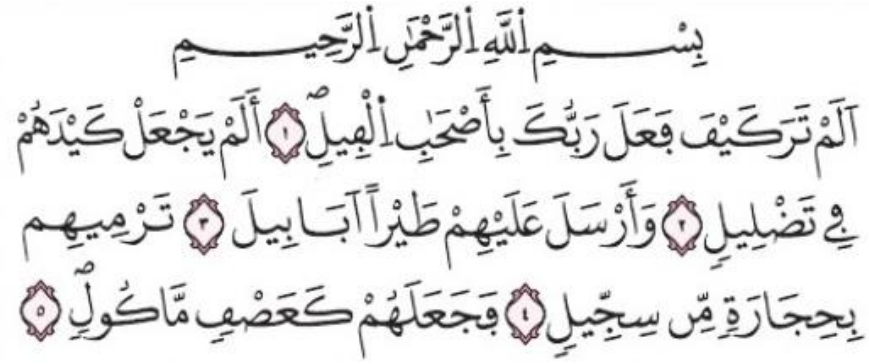 بِسْمِ اِ۬للَّهِ اِ۬لرَّحْمَٰنِ اِ۬لرَّحِيمِ
اَلَمْ تَرَ كَيْفَ فَعَلَ رَبُّكَ بِأَصْحَٰبِ اِ۬لْفِيلِۖ ١ أَلَمْ يَجْعَلْ كَيْدَهُمْ
فِے تَضْلِيلٖ ٢ وَأَرْسَلَ عَلَيْهِمْ طَيْراً اَبَابِيلَ ٣ تَرْمِيهِم
بِحِجَارَةٖ مِّن سِجِّيلٖ ٤ فَجَعَلَهُمْ كَعَصْفٖ مَّاكُولِۖ ٥